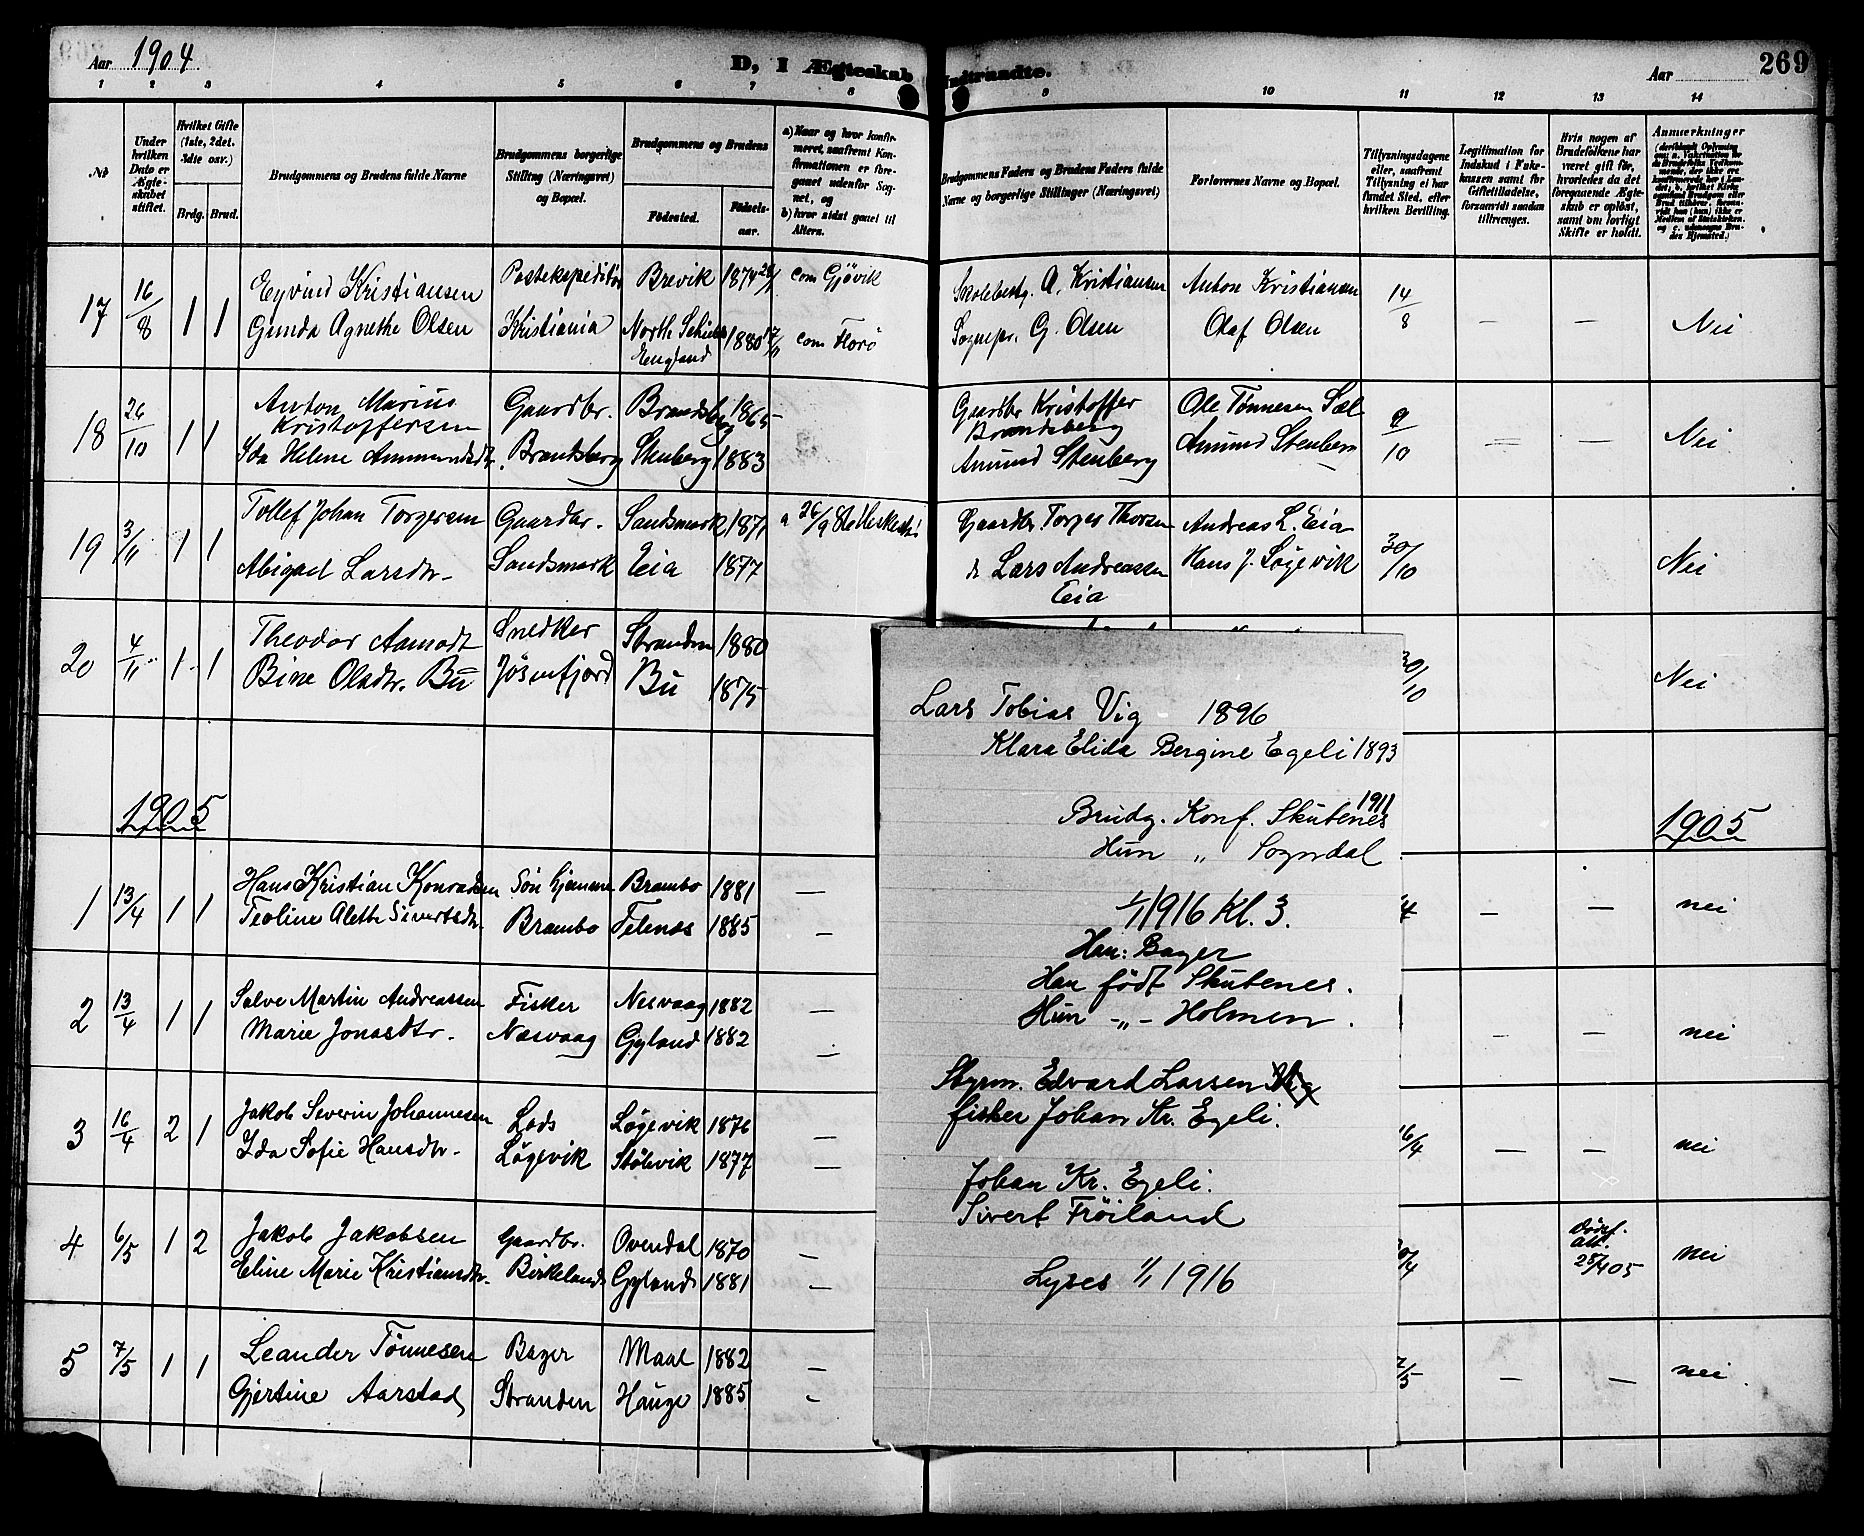 Aar 1904
D, I Ægteskab Indtraadte.
Aar
269
1 2 3 4 5 6 7 8 9 10 11 12 13 14
No
Under hvilken Dato er Ægteskabet stiftet.
Hvilket Gifte (1ste, 2det. 3die osv.)
Brdg. Brud.
Brudgommens og Brudens fulde Navne
Brudgommens borgerlige Stilling (Næringsvei) og Bopæl.
Brudgommens og Brudens
Fødested.
Fødselsaar.
a) Naar og hvor konfirmeret, saafremt Konfirmationen er foregaaet udenfor Sognet, og
b) hvor sidst gaaet til Alters.
Brudgommens Faders og Brudens Faders fulde Navne og borgerlige Stillinger (Næringsvei)
Forlovernes Navne og Bopæl.
Tillysningsdagene eller, saafremt Tillysning ei har fundet Sted, efter hvilken Bevilling.
Legitimation for Indskud i Enkekassen samt for Giftetilladelse, forsaavidt saadan tiltrænges.
Hvis nogen af Brudefolkene har været gift før, hvorledes da det foregaaende Ægteskab er opløst, samt om lovligt Skifte er holdt.
Anmærkninger
17 16/8 1 1 Eyvind Kristiansen Postekspeditør Brevik 1874 com Gjøvik Skolebest. A. Kristiansen Anton Kristiansen 14/8 — — Nei
Gunda Agnethe Olsen Kristiania North Schields England 1880 com Florø Sognepr. G. Olsen Olaf Olsen
18 26/10 1 1 Anton Marius Kristoffersen Gaardbr. Brandsberg 1865 Gaardbr Kristoffer Brandsberg Ole Tønnesen Sæl 9/10 — — Nei
Ida Helene Ammundsdtr. Brandsberg Stenberg 1883 Amund Stenberg Amund Stenberg
19 3/11 1 1 Tollef Johan Torgersen Gaardbr. Sandsmark 1871 a 26/9 Gaardbr Torger Thorsen Andreas L. Eia 30/10 Nei
Abigael Larsdtr. Sandsmark Eia 1877 Lars Andreassen Eia Hans J. Løgevik
20 4/11 1 1 Theodor Aamodt Snedker Stranden 1880 30/10 Nei
Bine Olsdtr. Bu Jøsenfjord Bu 1875
1905 1905
1 13/4 1 1 Hans Kristian Konradsen Søn hjemme Brambo 1881 — 4 — — nei
Teoline Alette Sivertsdtr. Brambo Felenes 1885 —
2 13/4 1 1 Salve Martin Andreassen Fisker Nesvaag 1882 — — — nei
Marie Jonasdtr. Nesvaag Gyland 1882 —
3 16/4 2 1 Jakob Severin Johannesen Lods Løgevik 1876 — 16/4 — — nei
Ida Sofie Hansdtr. Løgevik Stølsvik 1877 —
4 6/5 1 2 Jakob Jakobsen Gaardbr. Ovendal 1870 — /4 Dødsf. att. 28/4 05 nei
Eline Marie Kristiansdtr. Birkeland Gyland 1881 —
5 7/5 1 1 Leander Tønnesen Bager Maal 1882 — /5 — — nei.
Gjertine Aarstad Stranden Hauge 1885 —
Lars Tobias Vig 1896
Klara Elida Bergine Egeli 1893
Brudg. Konf. Skutenes 1911
Hun „ Sogndal
1/1 1916 Kl. 3.
Han: Bager
Han født Skutenes.
Hun -„- Holmen.
Styrm. Edvard Larsen Vig
fisker Johan Kr. Egeli.
Johan Kr. Egeli.
Sivert Frøiland
Lyses 1/1 1916